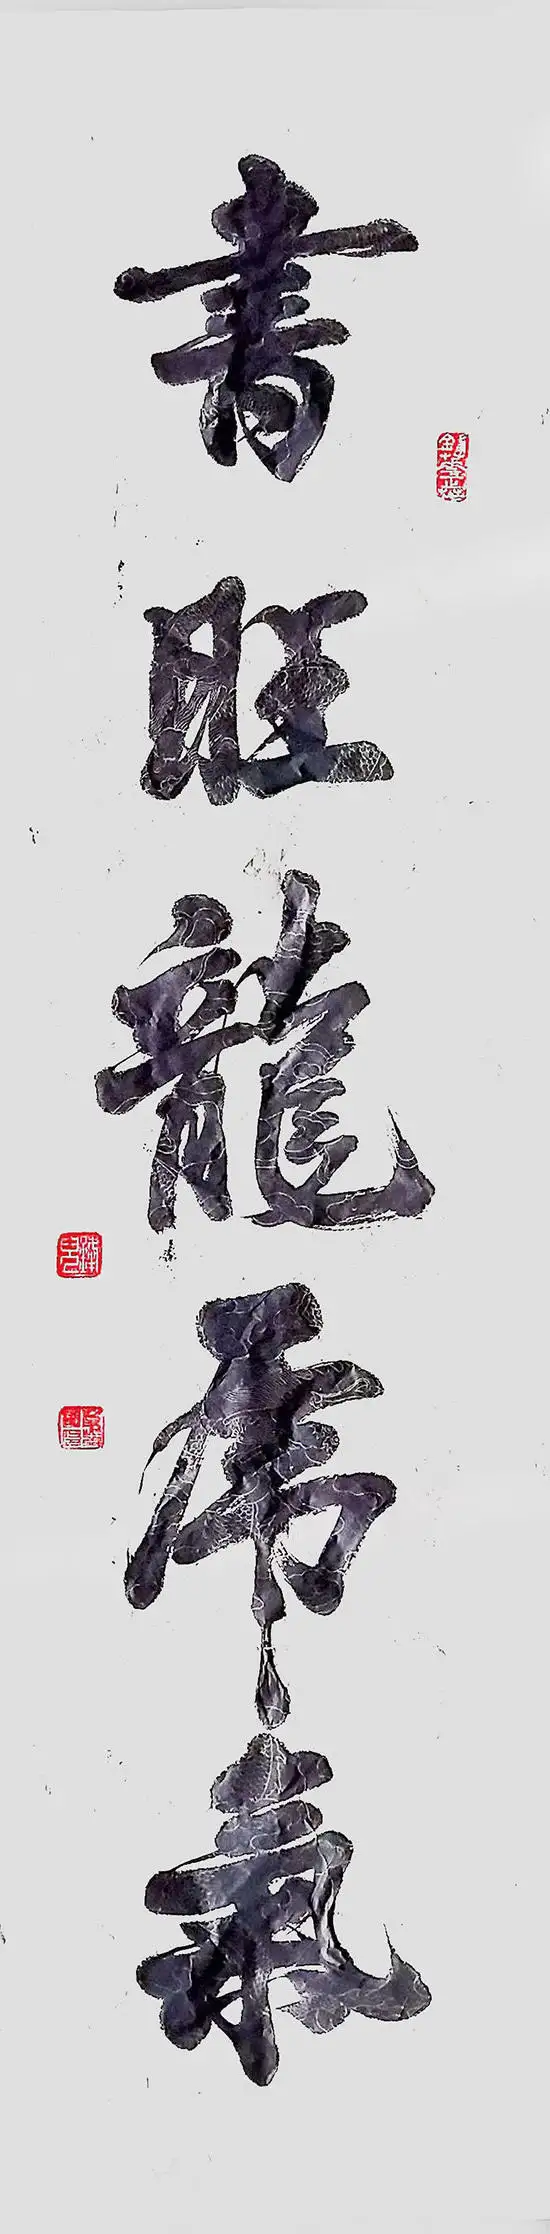 書旺龍虎氣